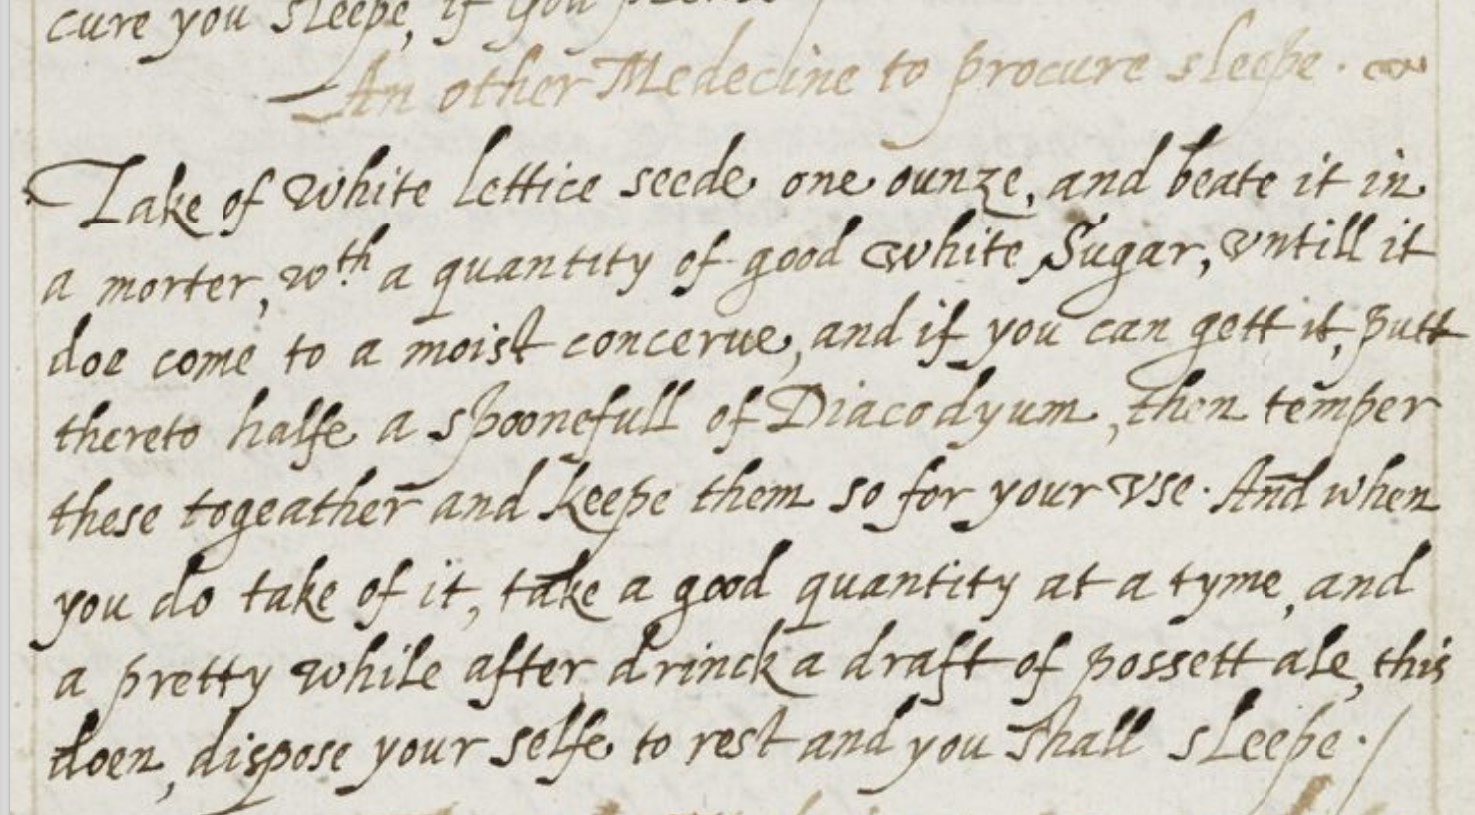 cure you sleepe, if you please
An other Medecine to procure sleepe.
Take of white lettice seede one ounze, and beate it in
a morter, wth. a quantity of good white Sugar, vntill it
doe come to a moist concerue, and if you can gett it, putt
thereto halfe a spoonefull of Diacodyum, then temper
these togeather and keepe them so for your vse. And when
you do take of it, take a good quantity at a tyme, and
a pretty while after drinck a draft of possett ale, this
doen, dispose your selfe to rest and you shall sleepe./